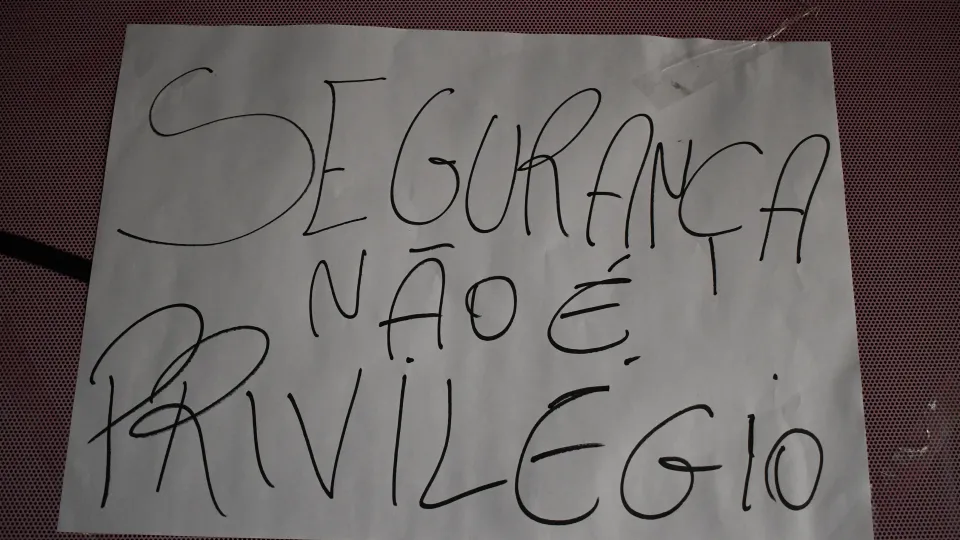 SEGURANÇA
NÃO É
PRIVILÉGIO